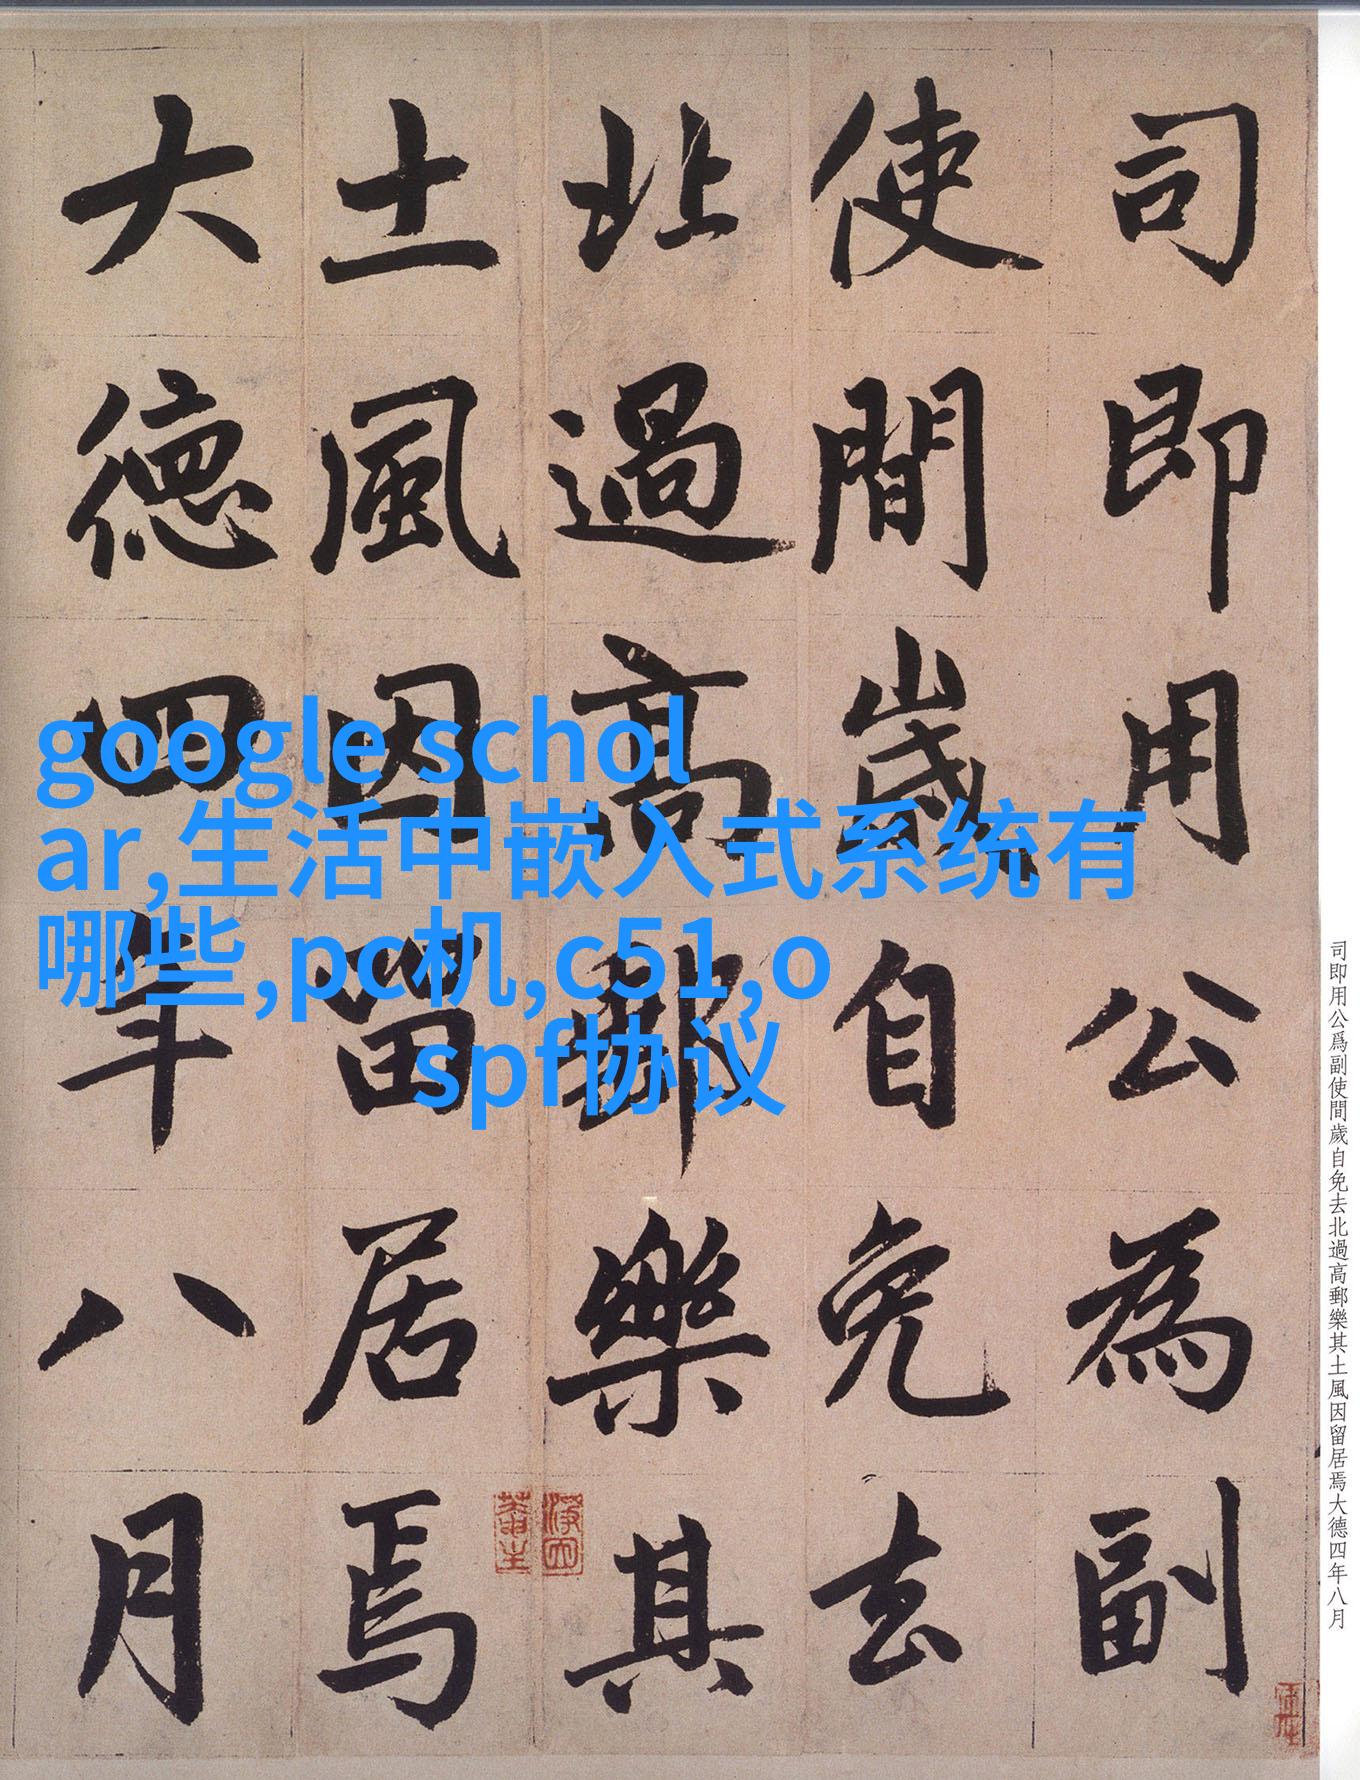 司即用公為副
使間歲自免去
北過高郵樂其
土風因留居焉
大德四年八月
google schol
ar,生活中嵌入式系统有
哪些,pc机,c51,o
spf协议
司即用公爲副使間歲自免去北過高郵樂其土風因留居焉大德四年八月